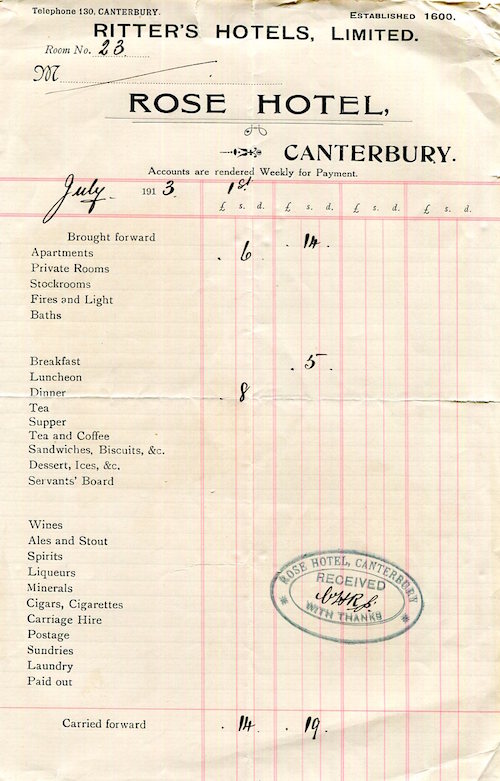 Telephone 130, CANTERBURY.
ESTABLISHED 1600.
RITTER'S HOTELS, LIMITED.
Room No. 23
M
ROSE HOTEL,
CANTERBURY.
Accounts are rendered Weekly for Payment.
July 1913. 1st
£ s. d. £ s. d. £ s. d. £ s. d.
Brought forward . 14 .
Apartments . 6
Private Rooms
Stockrooms
Fires and Light
Baths
Breakfast . 5 .
Luncheon
Dinner . 8
Tea
Supper
Tea and Coffee
Sandwiches, Biscuits, &c.
Dessert, Ices, &c.
Servants' Board
Wines
Ales and Stout
Spirits
Liqueurs
Minerals
Cigars, Cigarettes
Carriage Hire
Postage
Sundries
Laundry
Paid out
ROSE HOTEL, CANTERBURY
RECEIVED
WITH THANKS
Carried forward . 14 . 19 .